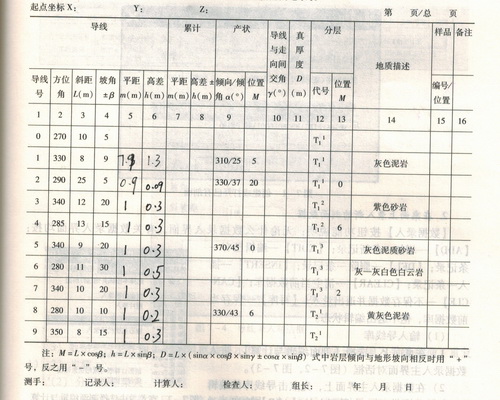 起点坐标 X： Y： Z： 第 页/总 页
导线 累计 产状 导线与走向间交角γ(°) 真厚度D(m) 分层 地质描述 样品 备注
导线号 方位角 斜距L(m) 坡角±β 平距m(m) 高差h(m) 平距m(m) 高差±h(m) 倾向/倾角α(°) 位置M 代号 位置M 编号/位置
1 2 3 4 5 6 7 8 9 10 11 12 13 14 15 16
0 270 10 5 T₁¹
1 330 8 9 1.3 310/25 5 T₁¹ 灰色泥岩
2 290 25 5 0.9 0.09 330/37 20 T₁¹ 0
3 340 12 20 1 0.3 T₁² 紫色砂岩
4 285 13 15 1 0.3 T₁² 6
5 340 9 20 1 0.3 370/45 0 T₁³ 灰色泥质砂岩
6 280 11 30 1 0.5 T₁³ 灰—灰白色白云岩
7 340 10 20 1 0.3 T₁³ 2
8 280 10 10 1 0.2 330/43 6 T₂¹ 黄灰色泥岩
9 350 8 15 1 0.3 T₂¹
注：M=L×cosβ；h=L×sinβ；D=L×(sinα×cosβ×sinγ±cosα×sinβ) 式中岩层倾向与地形坡向相反时用“+”
号，反之用“−”号。
测手： 记录人： 计算人： 检查人： 组长： 年 月 日